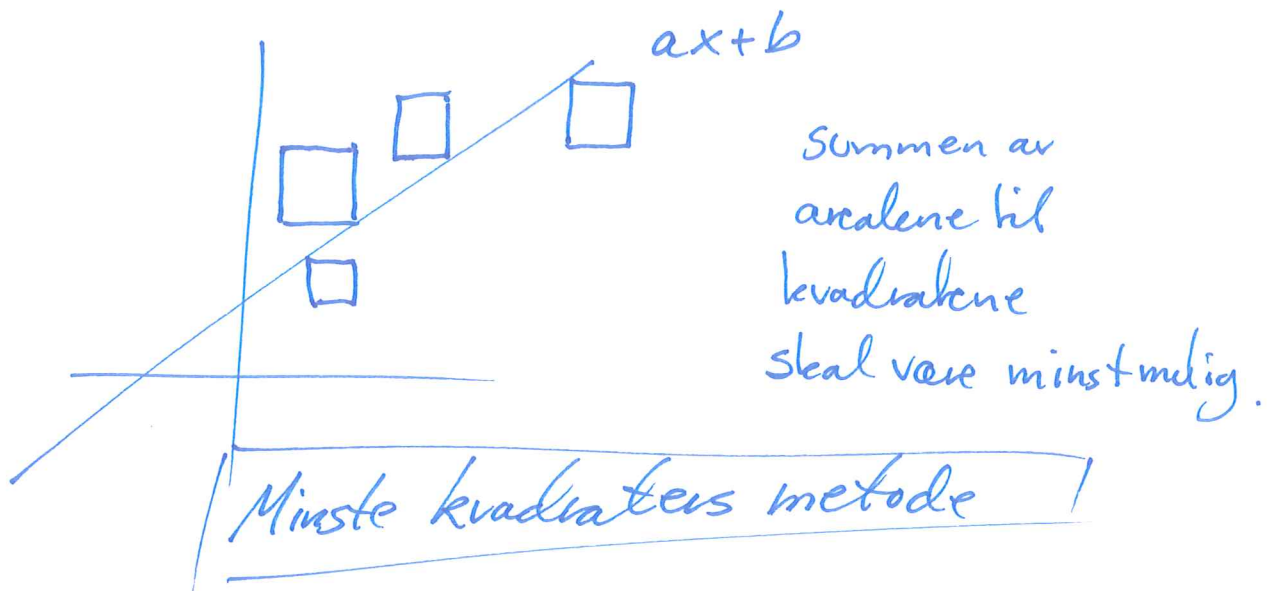 ax+b
Summen av
arealene til
kvadratene
skal være minst mulig.
Minste kvadraters metode